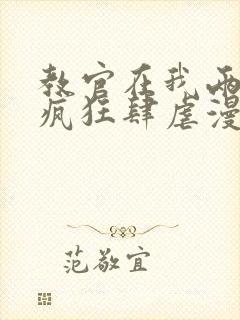 教官在我两
疯狂肆虐漫
范敬宜